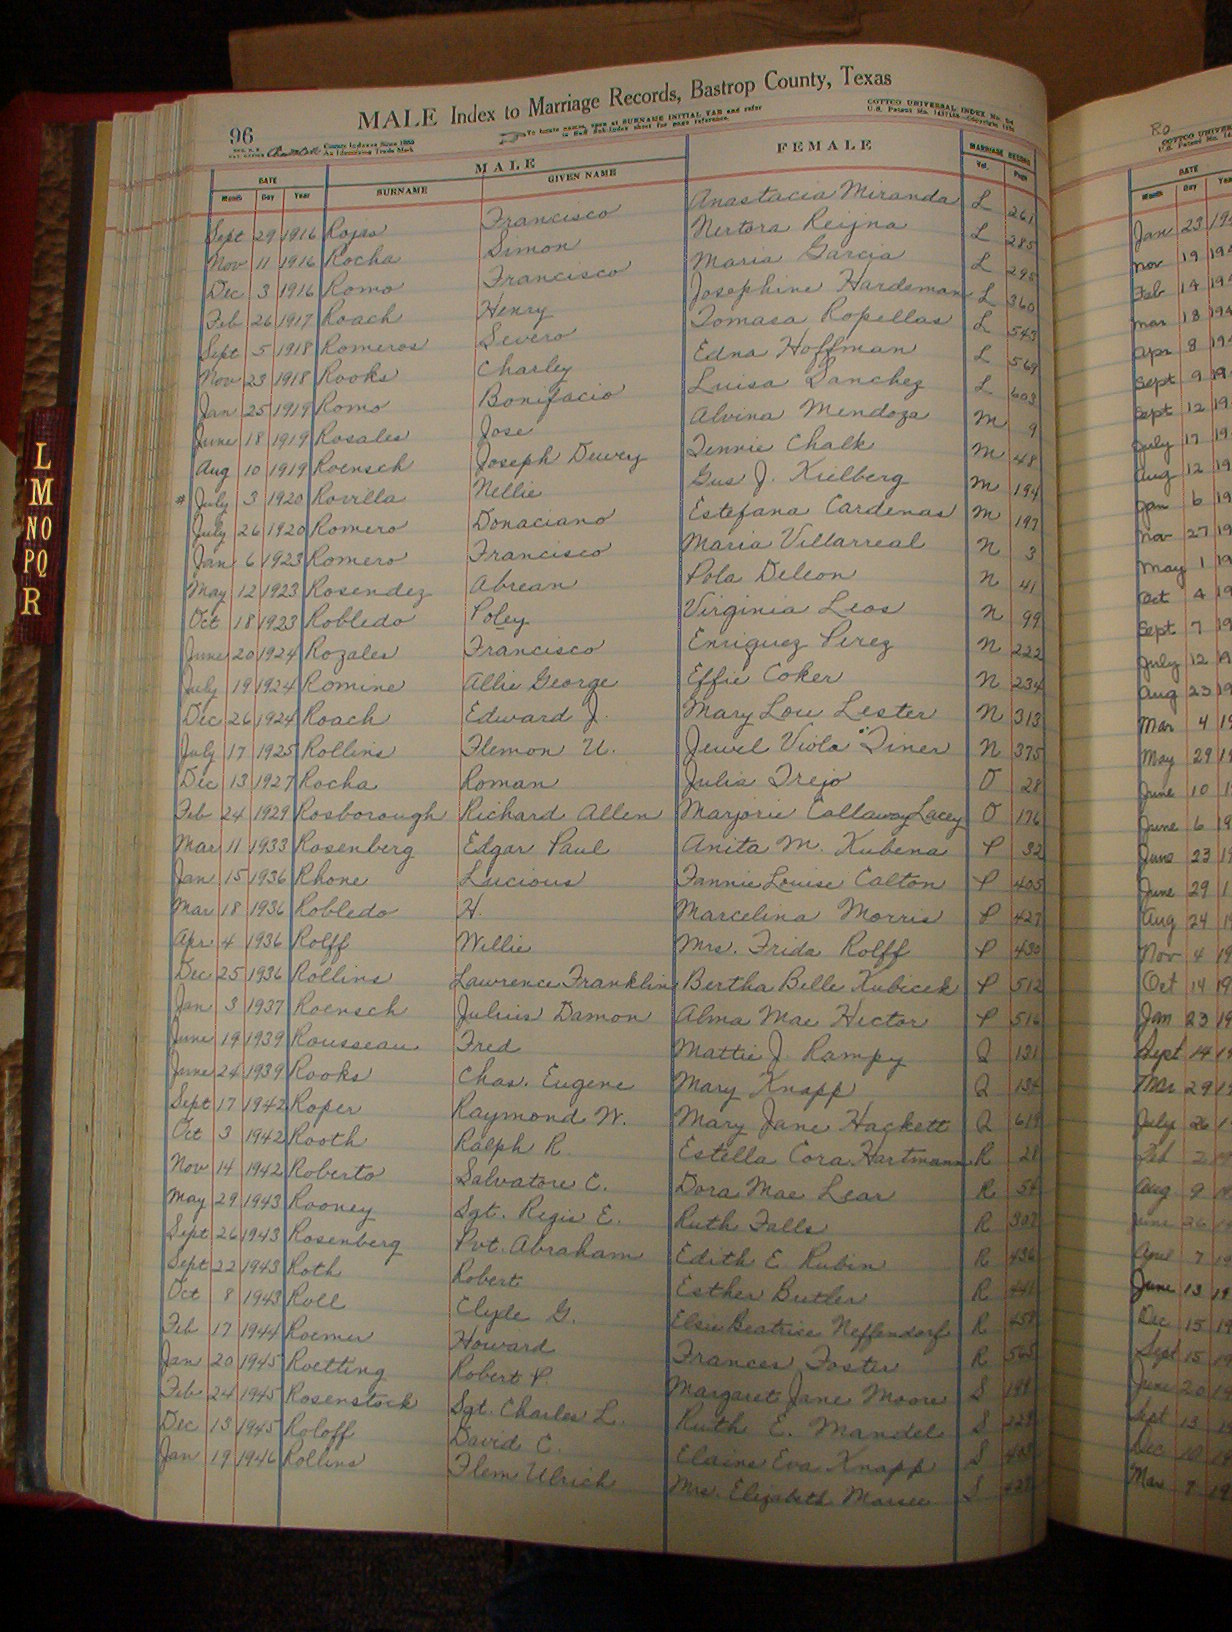 MALE Index to Marriage Records, Bastrop County, Texas
96
To locate names, open at SURNAME INITIAL TAB and refer
COTTCO UNIVERSAL INDEX
County Indexes Since 1880
An Identifying Trade Mark
DATE MALE FEMALE MARRIAGE RECORD
Month Day Year SURNAME GIVEN NAME Vol. Page
Sept 29 1916 Rojas Francisco Anastacia Miranda L 261
Nov 11 1916 Rocha Simon Nertora Reijna L 285
Dec 3 1916 Romo Francisco Maria Garcia L 295
Feb 26 1917 Roach Henry Josephine Hardeman L 360
Sept 5 1918 Romeros Severo Tomasa Ropellas L 543
Nov 23 1918 Rooks Charley Edna Hoffman L 569
Jan 25 1919 Romo Bonifacio Luisa Sanchez L 603
June 18 1919 Rosales Jose Alvina Mendoza M 9
Aug 10 1919 Roensch Joseph Dewey Tennie Chalk M 48
* July 3 1920 Rovilla Nellie Gus J. Kielberg M 194
July 26 1920 Romero Donaciano Estefana Cardenas M 197
Jan 6 1923 Romero Francisco Maria Villarreal N 3
May 12 1923 Rosendez Abrean Pola Deleon N 41
Oct 18 1923 Robledo Poley Virginia Leos N 99
June 20 1924 Rozales Francisco Enriquez Perez N 222
July 19 1924 Romine Allie George Effie Coker N 234
Dec 26 1924 Roach Edward J. Mary Lou Lester N 313
July 17 1925 Rollins Flemon U. Jewel Viola Tiner N 375
Dec 13 1927 Rocha Roman Julia Trejo O 28
Feb 24 1929 Rosborough Richard Allen Marjorie Callaway Lacey O 176
Mar 11 1933 Rosenberg Edgar Paul Anita M. Kubena P 32
Jan 15 1936 Rhone Lucious Fannie Louise Calton P 405
Mar 18 1936 Robledo H. Marcelina Morris P 427
Apr 4 1936 Rolff Willie Mrs. Frida Rolff P 430
Dec 25 1936 Rollins Lawrence Franklin Bertha Belle Kubicek P 512
Jan 3 1937 Roensch Julius Damon Alma Mae Hector P 516
June 19 1939 Rousseau Fred Mattie J. Rampy Q 131
June 24 1939 Rooks Chas. Eugene Mary Knapp Q 134
Sept 17 1942 Roper Raymond W. Mary Jane Hackett Q 619
Oct 3 1942 Rooth Ralph R. Estella Cora Hartmann R 28
Nov 14 1942 Roberto Salvatore C. Dora Mae Lear R 54
May 29 1943 Rooney Sgt. Regis E. Ruth Falls R 307
Sept 26 1943 Rosenberg Pvt. Abraham Edith E. Rubin R 436
Sept 22 1943 Roth Robert Esther Butler R
Oct 8 1943 Roll Clyde G. Elsie Beatrice Neffendorf R
Feb 17 1944 Roemer Howard Frances Foster R 565
Jan 20 1945 Roetting Robert P. Margaret Jane Moore S
Feb 24 1945 Rosenstock Sgt. Charles L. Ruth E. Mandel S
Dec 13 1945 Roloff David C. Elaine Eva Knapp S
Jan 19 1946 Rollins Flem Ulrich Mrs. Elizabeth S
L
M
NO
PQ
R
Ro
DATE
Month Day
Jan 23
Nov 19
Feb 14
Mar 18
Apr 8
Sept 9
Sept 12
July 17
Aug 12
Jan 6
Nov 27
May 1
Oct 4
Sept 7
July 12
Aug 23
Mar 4
May 29
June 10
June 6
June 23
June 29
Aug 24
Nov 4
Oct 14
Jan 23
Sept 14
Mar 29
July 26
Feb
Aug 9
26
April 7
June 13
Dec 15
Sept 15
June 20
Sept 13
Dec 10
Mar 9